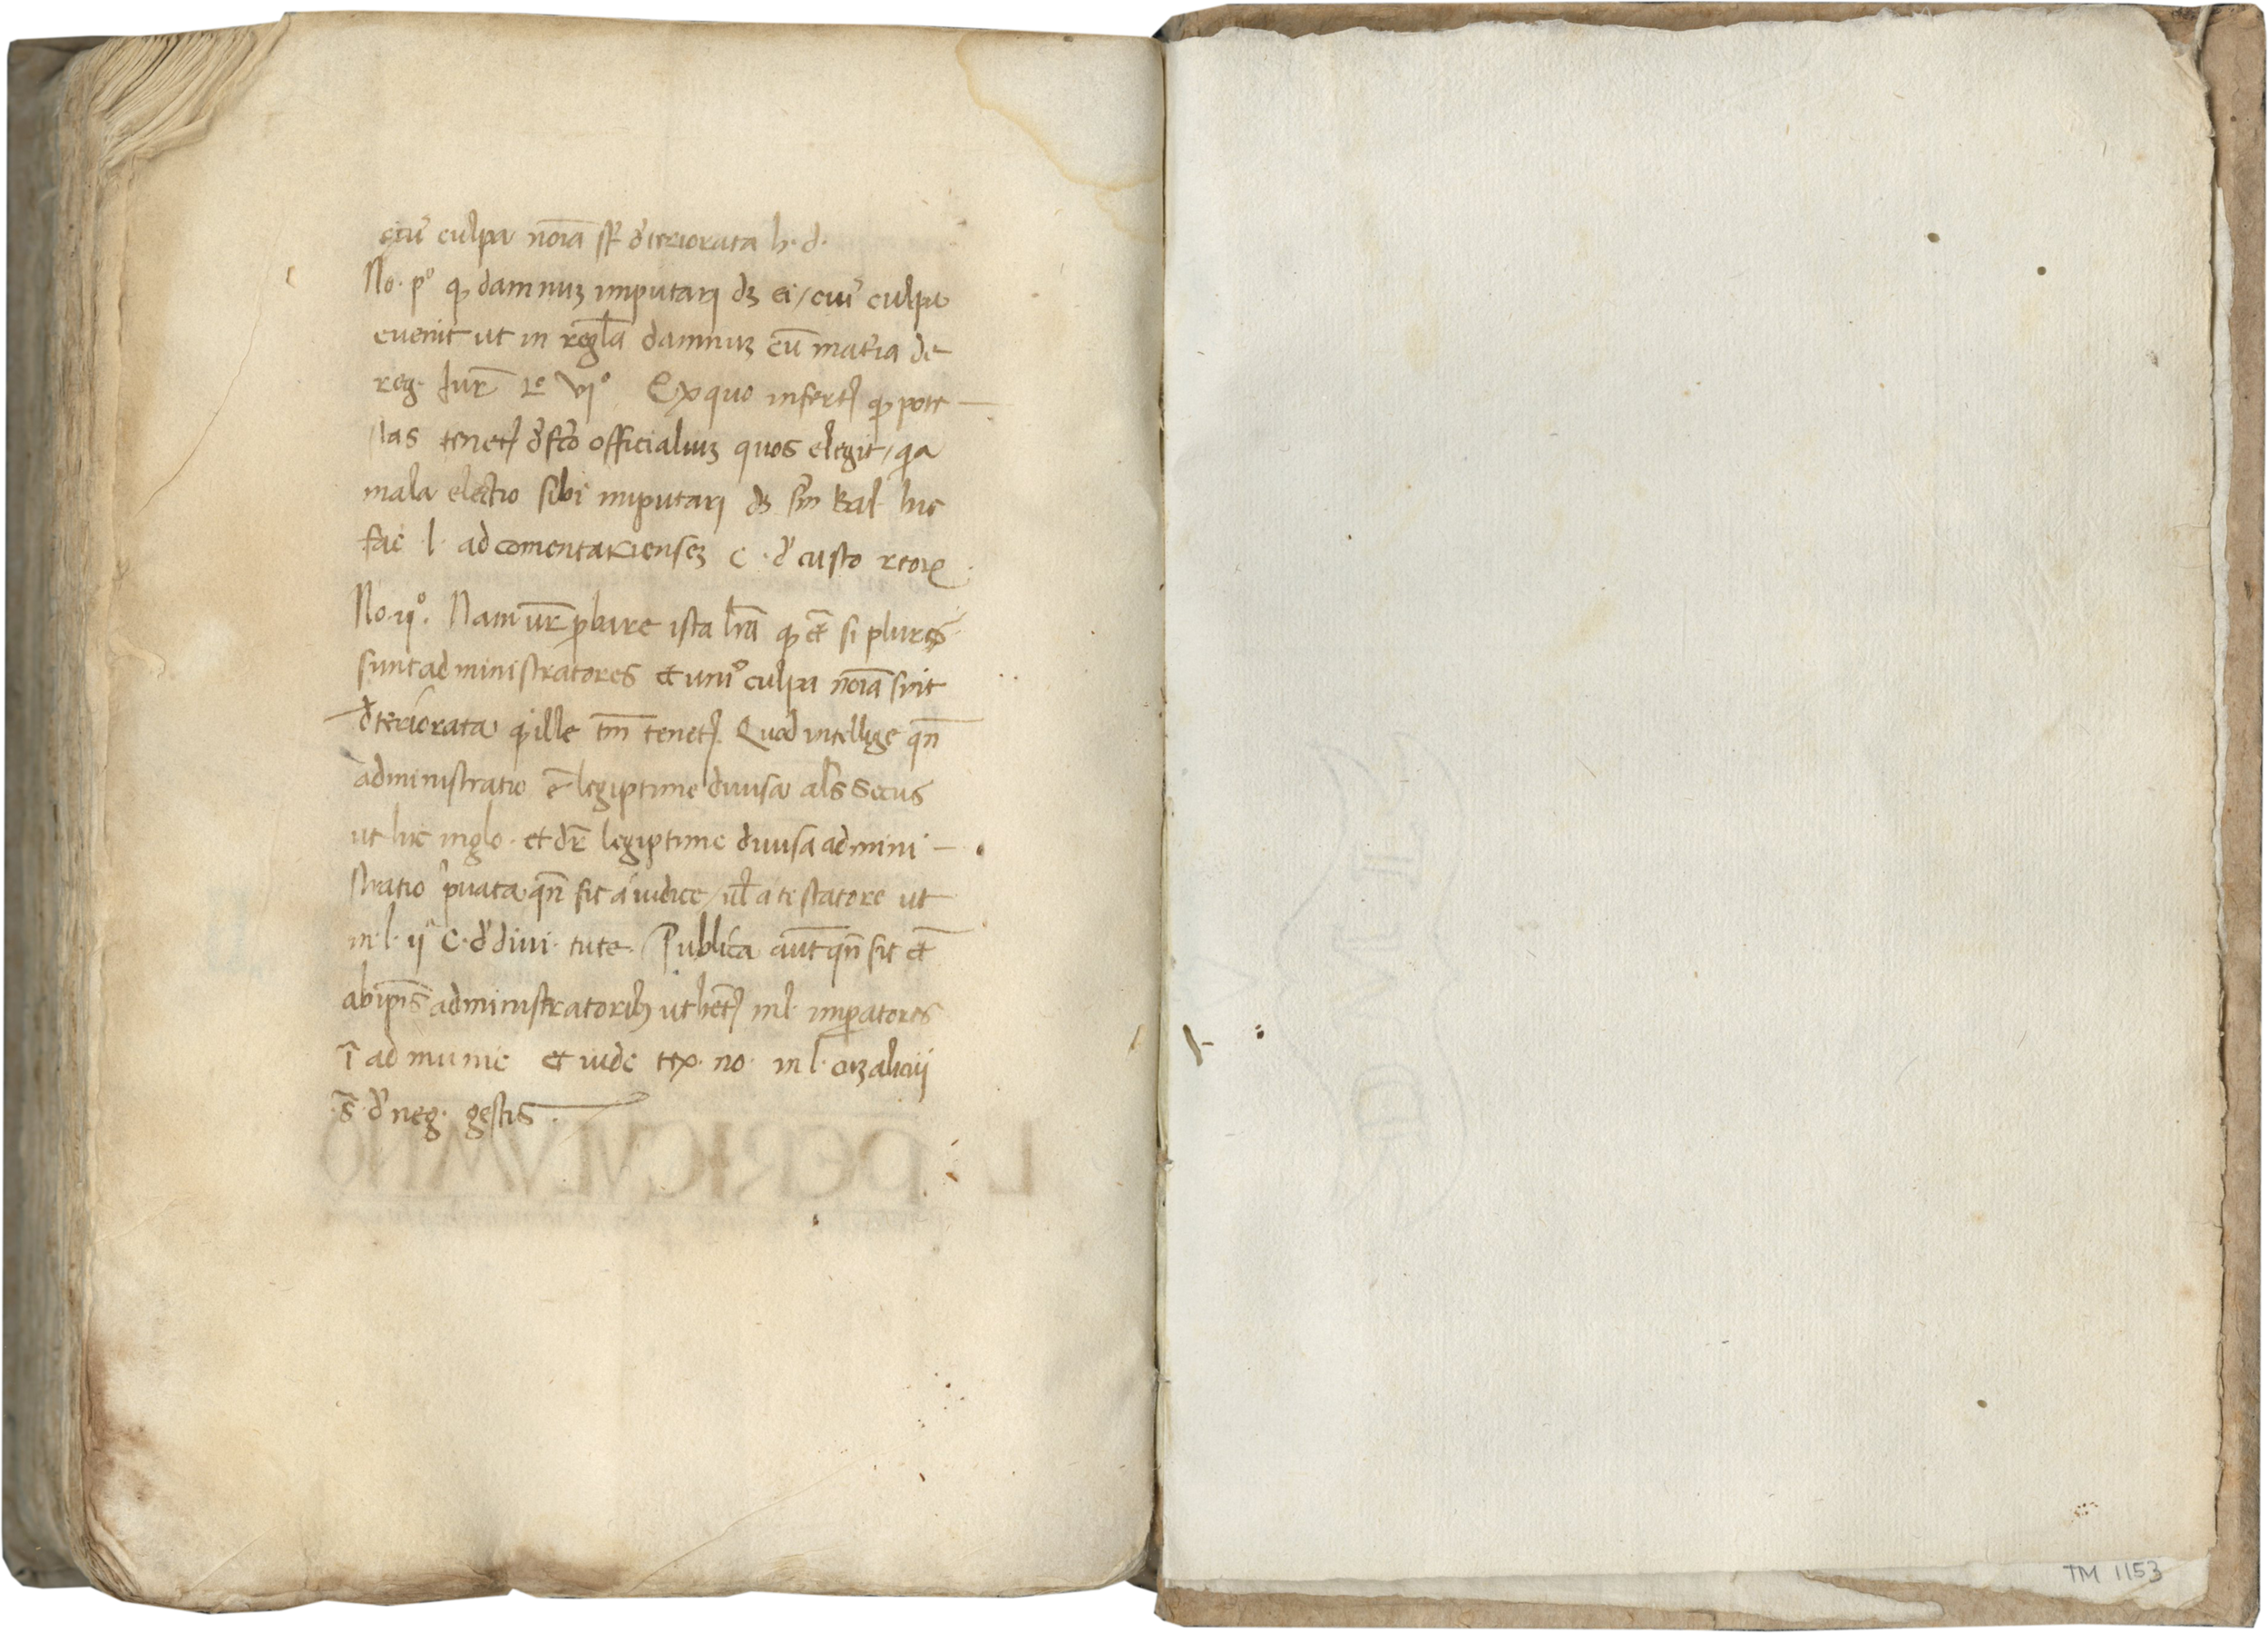 cuiꝰ culpa noīa sūt d'teriorata h. d.
No. p° ꝙ damnuꝫ imputari dꝫ ei / cuiꝰ culpa
euenit ut in regl̄a damnuꝫ cū mat'ia de
reg. Iur̄ Lo VI° Ex quo infert' ꝙ pote —
stas tenet' d'fc̄o officialiuꝫ quos elegit / qa
mala electio sibi imputari dꝫ sm̄ Bal. hic
fac l. ad comentarienseꝫ C. d' custo reoꝝ.
No. ij°. Nam ur̄ ꝓbare ista lr̄a ꝙ et̄ si plures
sunt administratores et uniꝰ culpa noīa sint
d'teriorata ꝙ ille tm̄ tenet'. Quod intellige qn̄
administratio ē legiptime diuisa als̄ secus
ut hic in glo. et dr̄ legiptime diuisa admini —
stratio p'uata qn̄ fit a iudice / ul̄ a testatore ut
in l. ij C. d' diui. tute. Publica aut̄ qn̄ fit et̄
ab ip̄is administratoribꝫ ut het̄' in l. impatores
ī ad munic et uide tex. no. in l. cuꝫ alicuij
.s̄. d' neg. gestis.
L. PERICVLVM NO
TM 1153